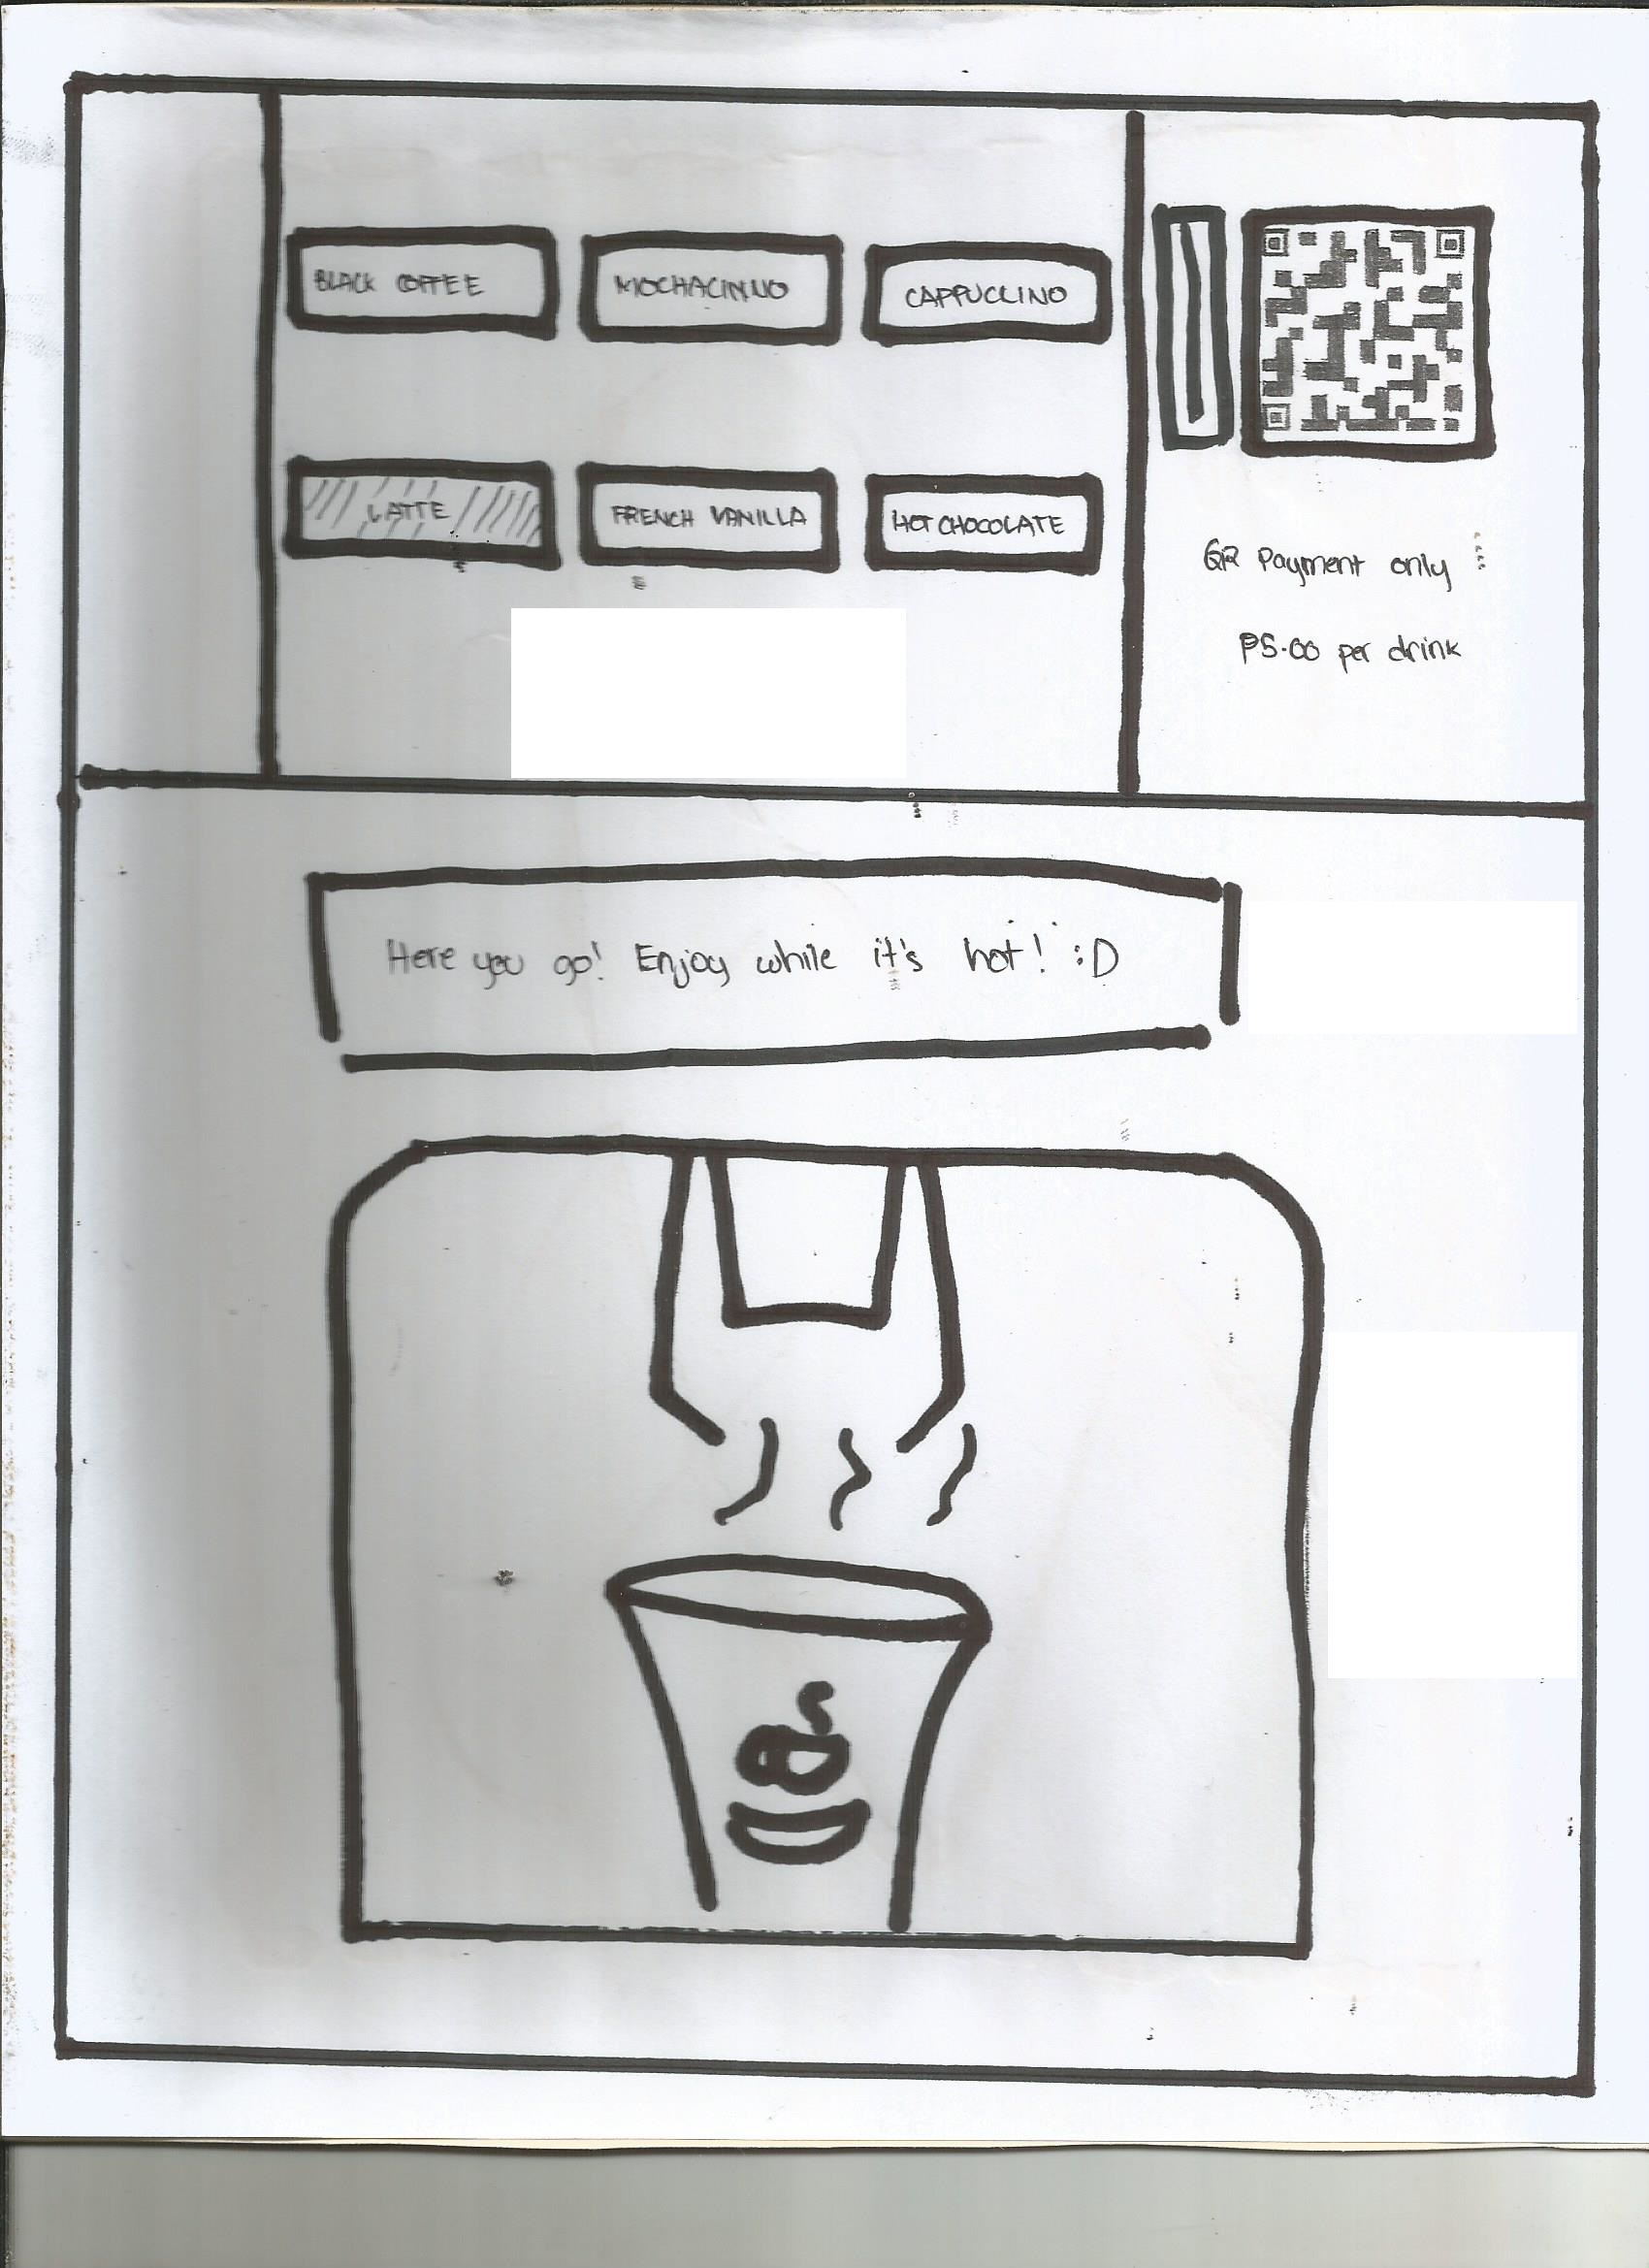 BLACK COFFEE
MOCHACINNO
CAPPUCCINO
LATTE
FRENCH VANILLA
HOT CHOCOLATE
QR Payment only
₱5.00 per drink
Here you go! Enjoy while it's hot! :D